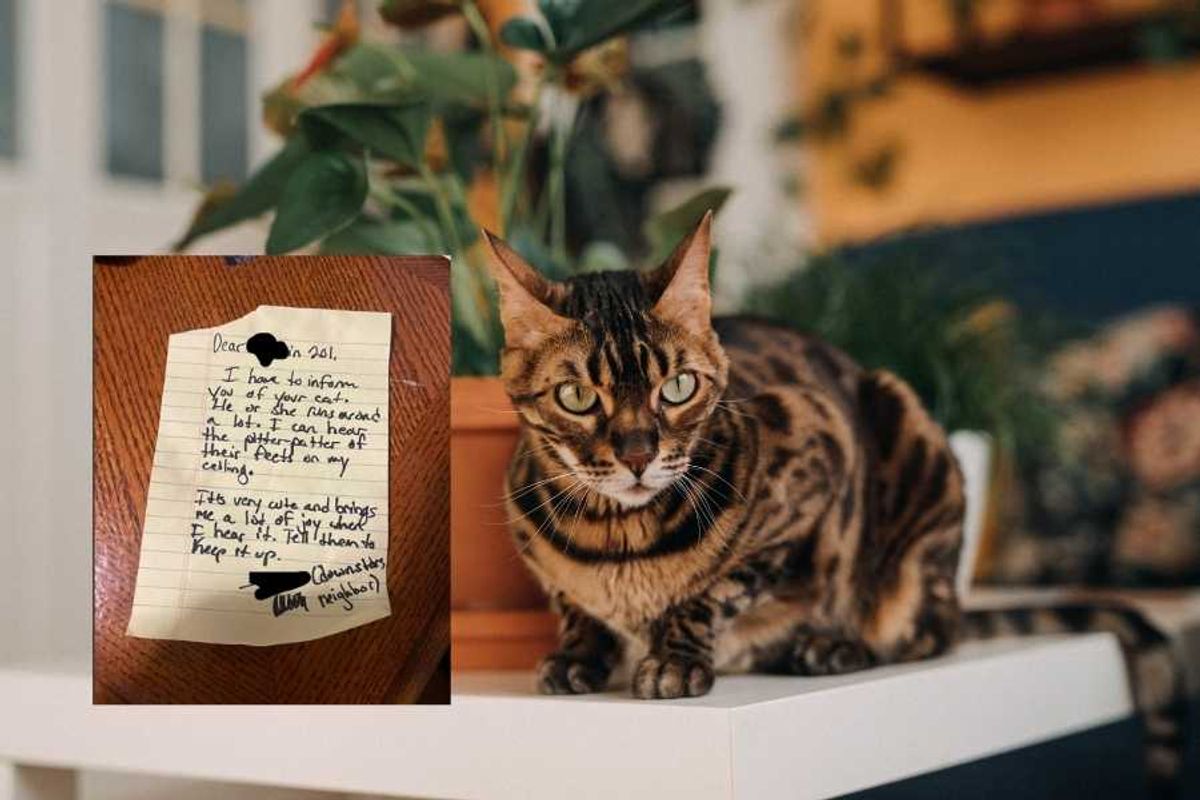 Dear in 201,
I have to inform
you of your cat.
He or she runs around
a lot. I can hear
the pitter-patter of
their feets on my
ceiling.
It's very cute and brings
me a lot of joy when
I hear it. Tell them to
keep it up.
(downstairs
neighbor)